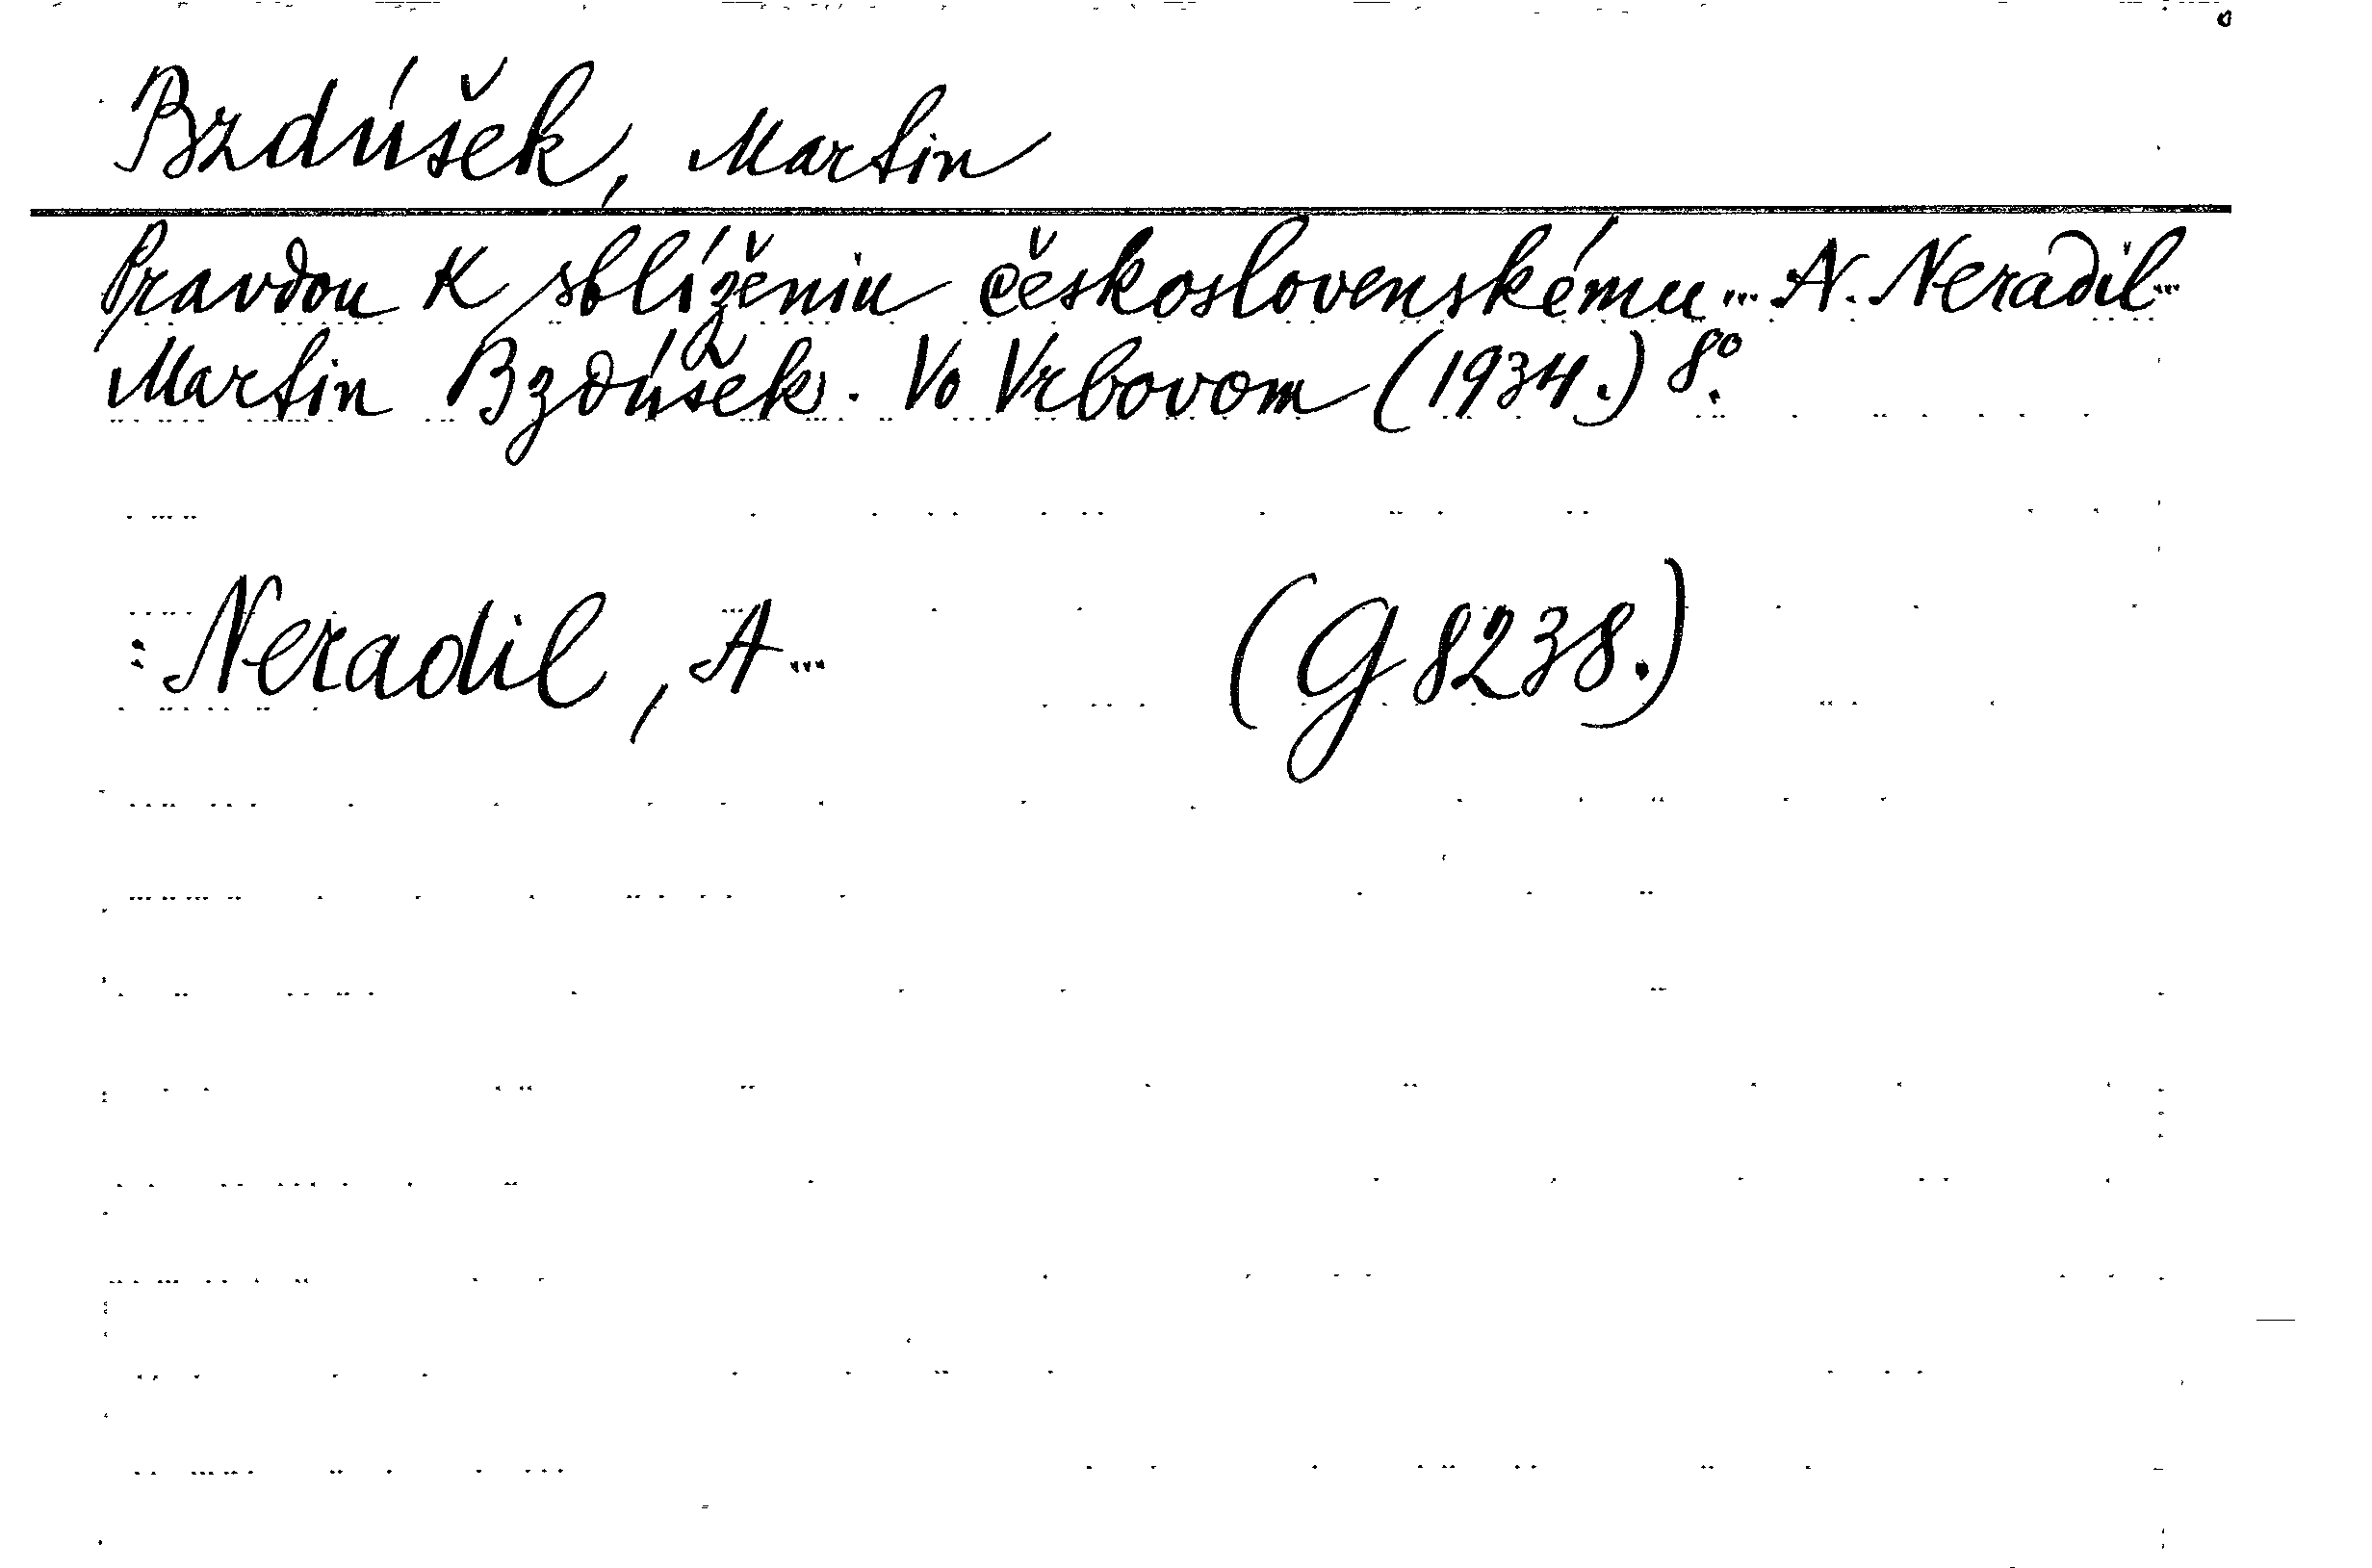 Bzdúšek, Martin
Pravdou k sblíženiu československému... A. Neradil...
Martin Bzdúšek. Vo Vrbovom (1934.) 8°.
: Neradil, A... (G 8238.)